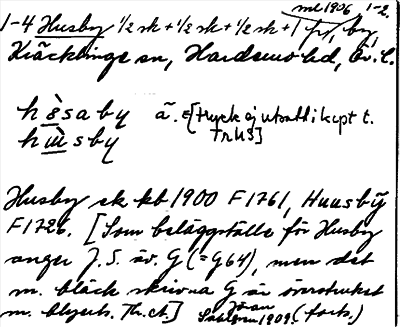 ml 1906 1-2.
1-4 Husby ½ sk + ½ sk + ½ sk + 1 fr, by,
Kräcklinge sn, Hardemo hd, Ör. l.
hèsaby ã. [tryck ej utsatt i kpt t.
hùsby TrHS]
Husby sk kb 1900 F1761, Huusbÿ
F1726. [Som beläggställe för Husby
anger J.S. äv. G (= G64), men det
m. bläck skrivna G är överstruket
m. blyerts. Th.ct.] Jöran
Sahlgren 1909. (forts.)